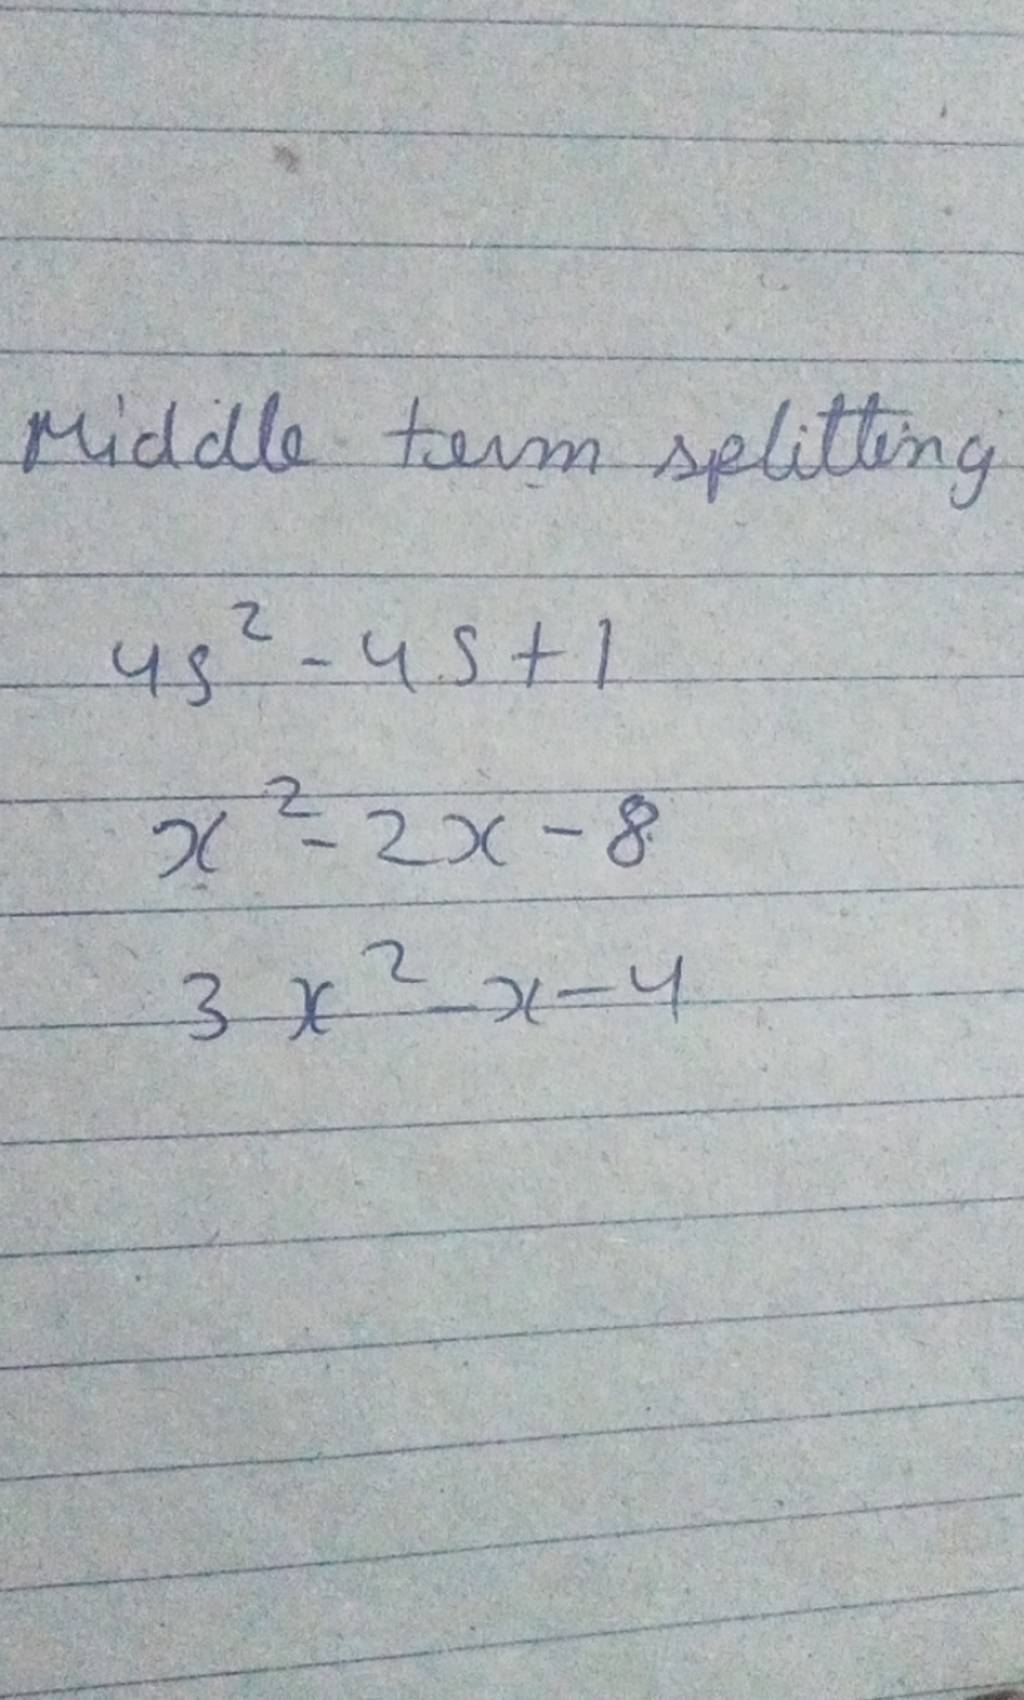 Middle term splitting
4s² - 4s + 1
x² - 2x - 8
3x² - x - 4